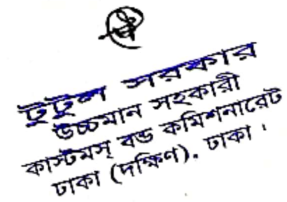 টুটুল সরকার
উচ্চমান সহকারী
কাস্টমস্ বন্ড কমিশনারেট
ঢাকা (দক্ষিণ). ঢাকা।